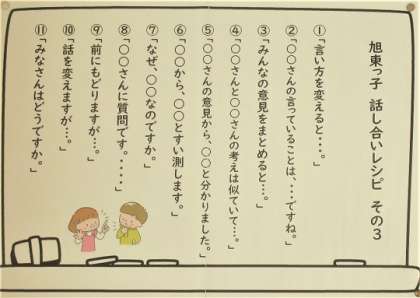 旭東っ子 話し合いレシピ その3
①「言い方を変えると・・・。」
②「〇〇さんの言っていることは、・・・ですね。」
③「みんなの意見をまとめると…。」
④「〇〇さんと〇〇さんの考えは似ていて…。」
⑤「〇〇さんの意見から、〇〇と分かりました。」
⑥「〇〇から、〇〇とすい測します。」
⑦「なぜ、〇〇なのですか。」
⑧「〇〇さんに質問です。・・・・」
⑨「前にもどりますが…。」
⑩「話を変えますが…。」
⑪「みなさんはどうですか。」